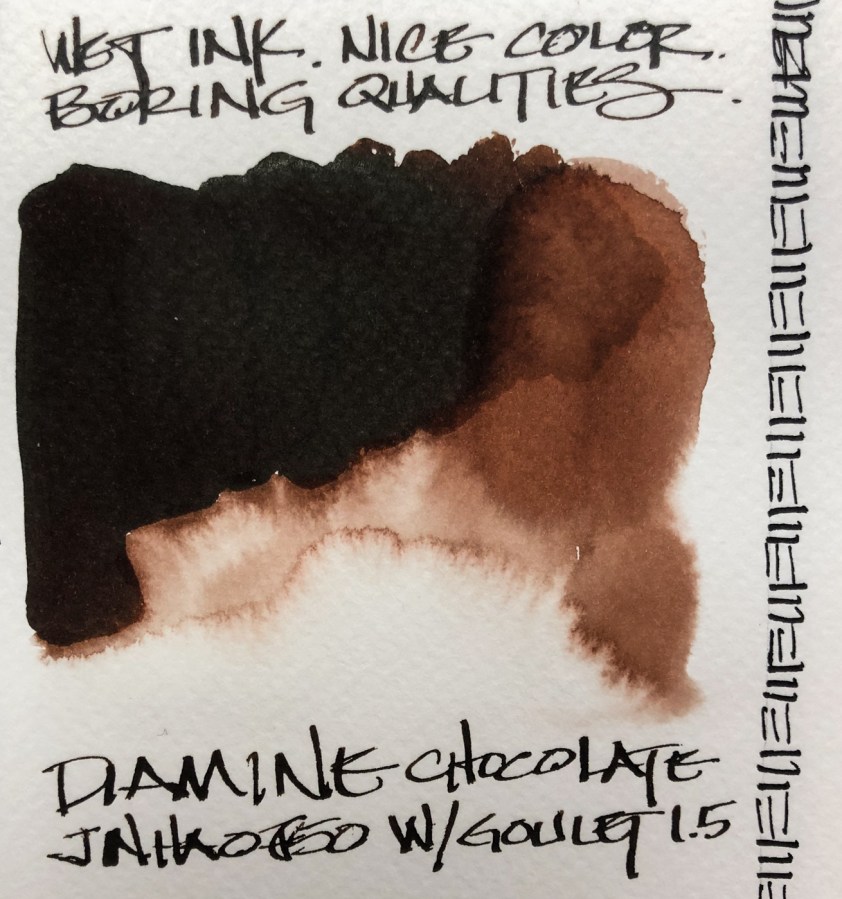 WET INK. NICE COLOR.
BORING QUALITIES.
DIAMINE CHOCOLATE
W/GOULET 1.5